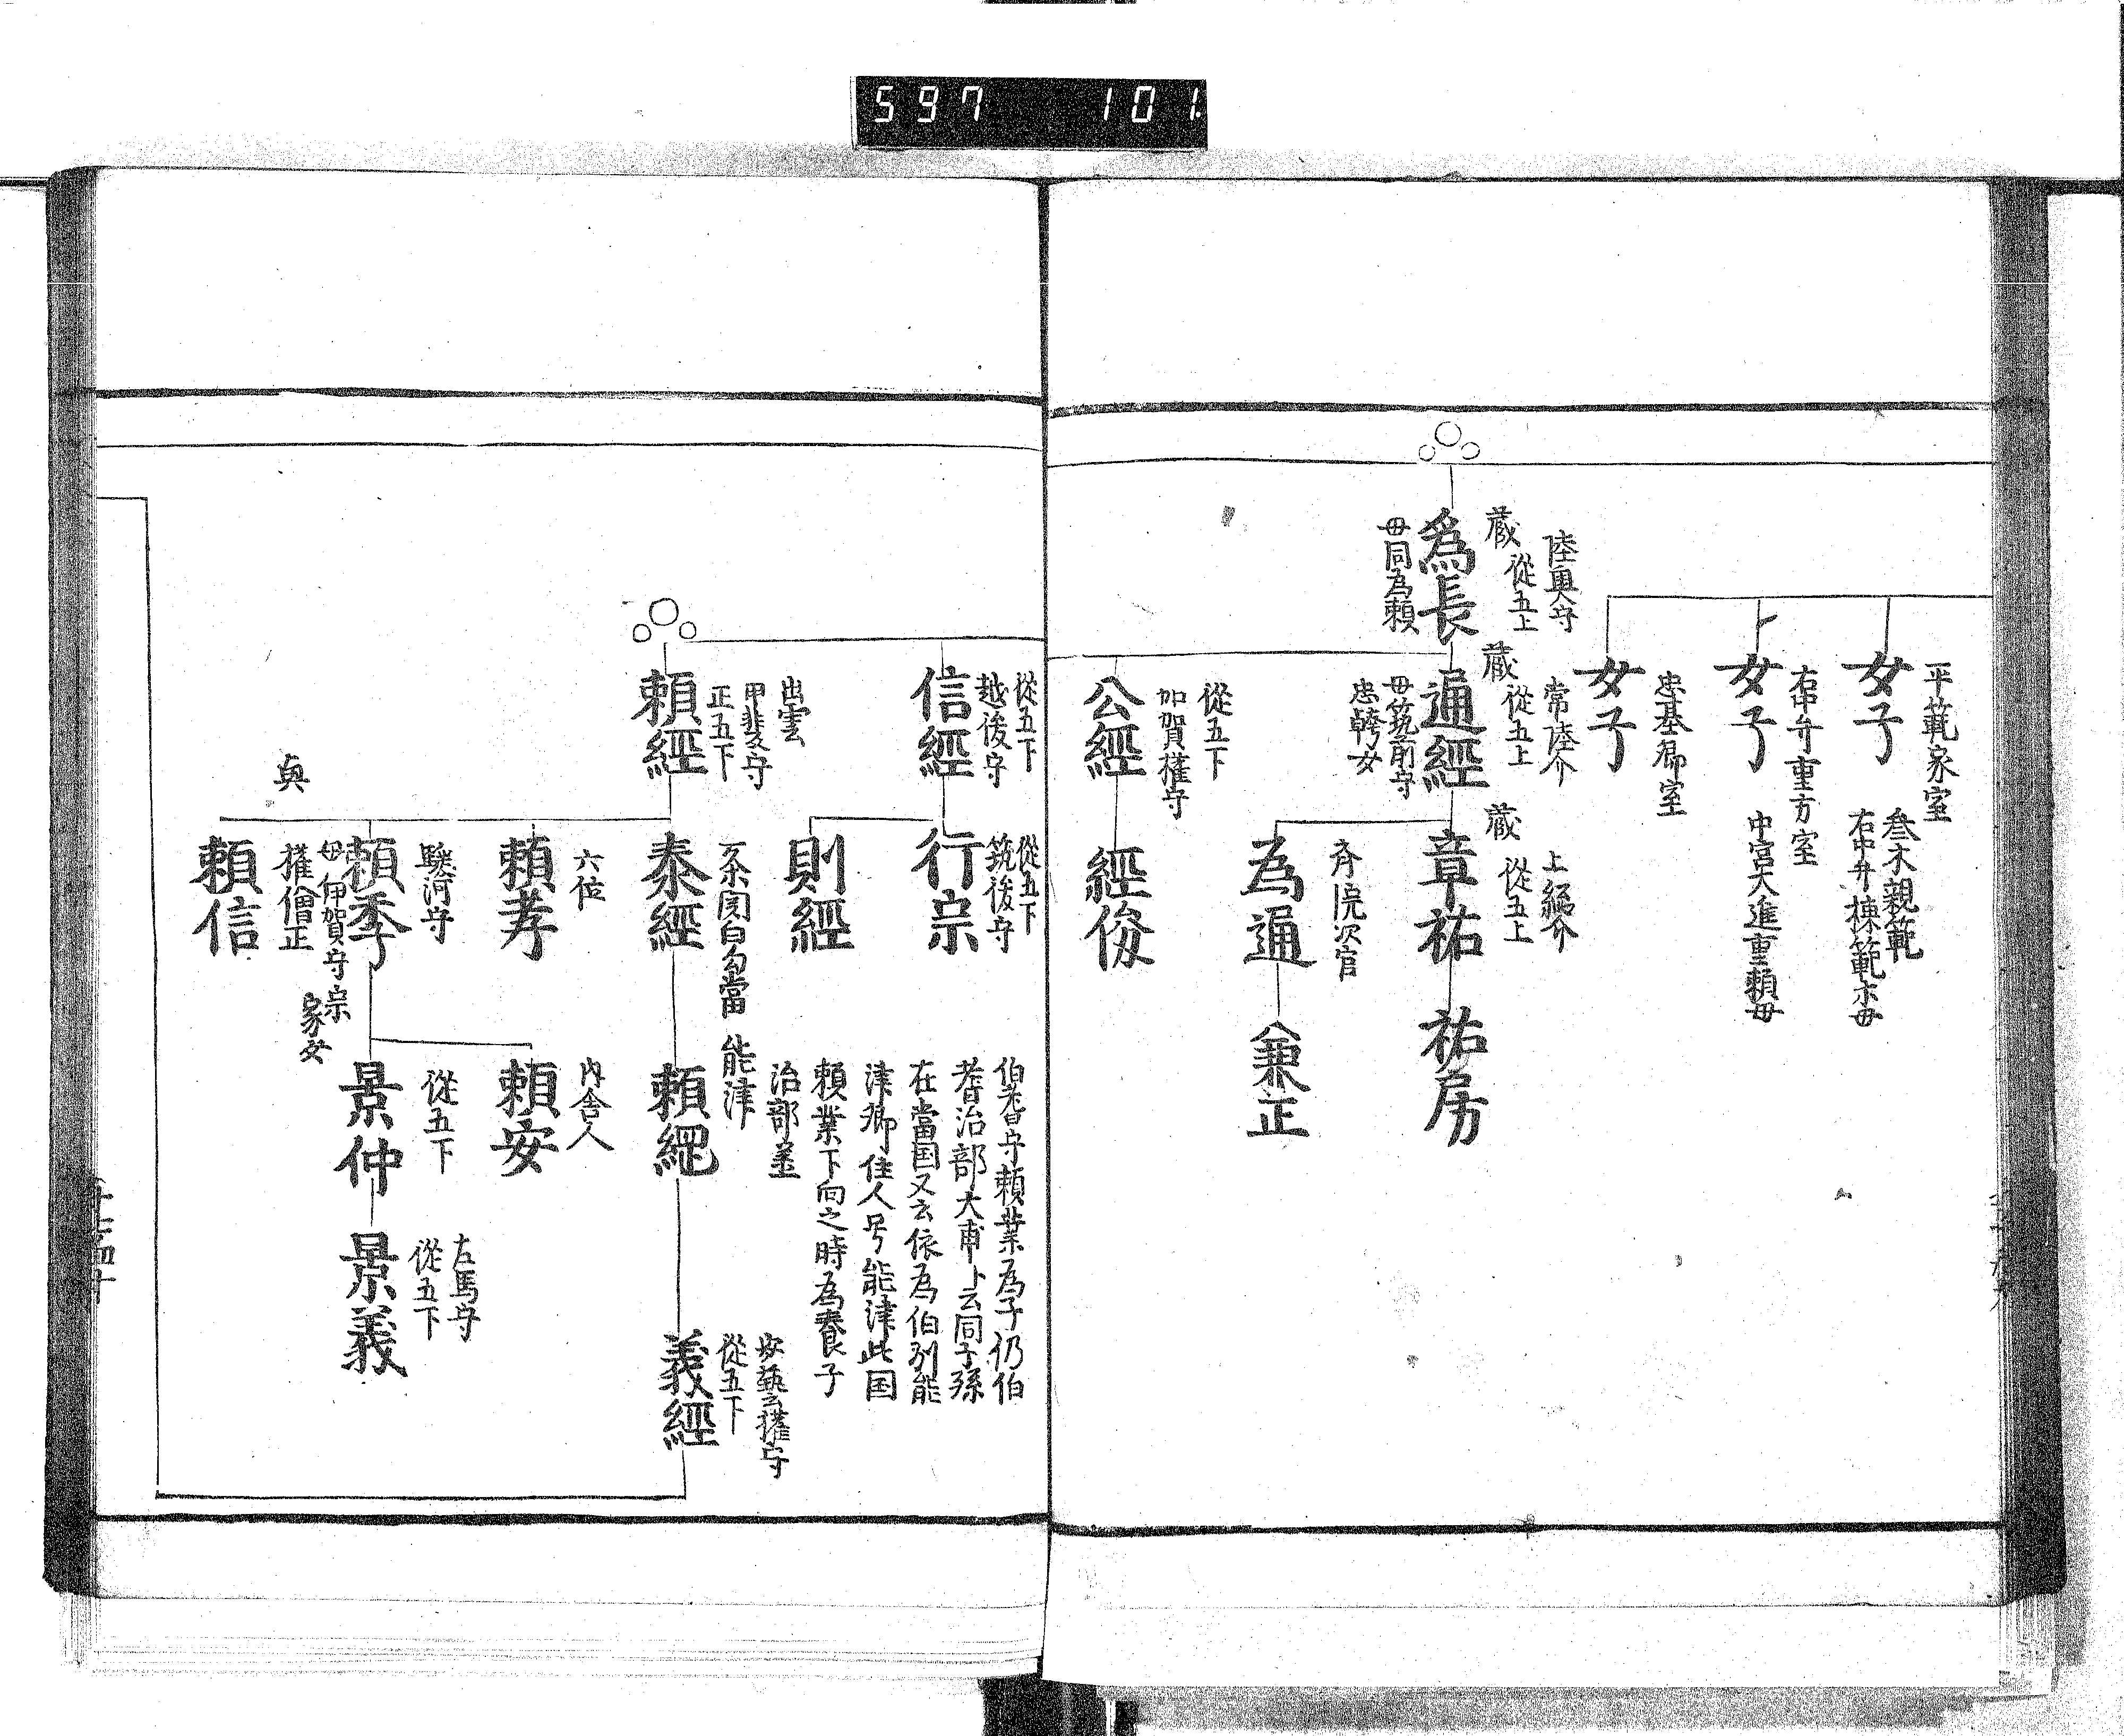 597 101
女子
平範家室
叅木親範
右中弁棟範木母
女子
右中弁重方室
中宮大進重頼母
女子
忠基卿室
爲長
蔵
從五上
陸奥守
母同為頼
通經
蔵
從五上
常陸介
母筑前守
忠幹女
章祐
蔵
從五上
上総介
祐房
為通
斉院次官
兼正
公經
從五下
加賀權守
經俊
信經
從五下
越後守
行宗
從五下
筑後守
則經
頼經
出雲
甲斐守
正五下
泰經
頼孝
六位
頼季
駿河守
母伊賀守宗
家女
頼信
權僧正
興
伯耆守頼業為子仍伯
耆治部大甫卜云同子孫
在當国又云依為伯刕能
津郷住人号能津此国
頼業下向之時為養子
治部丞
能津
頼縄
頼安
内舎人
景仲
從五下
景義
左馬守
從五下
義經
安藝權守
從五下